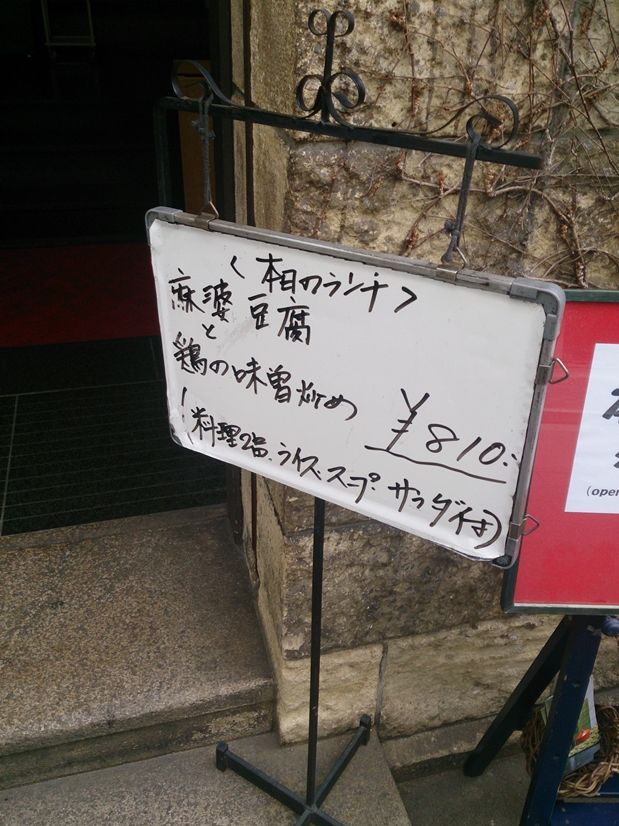 <本日のランチ>
麻婆豆腐
と
鶏の味噌炒め
¥810:
(料理2品、ライス、スープ、サラダ付)
(open